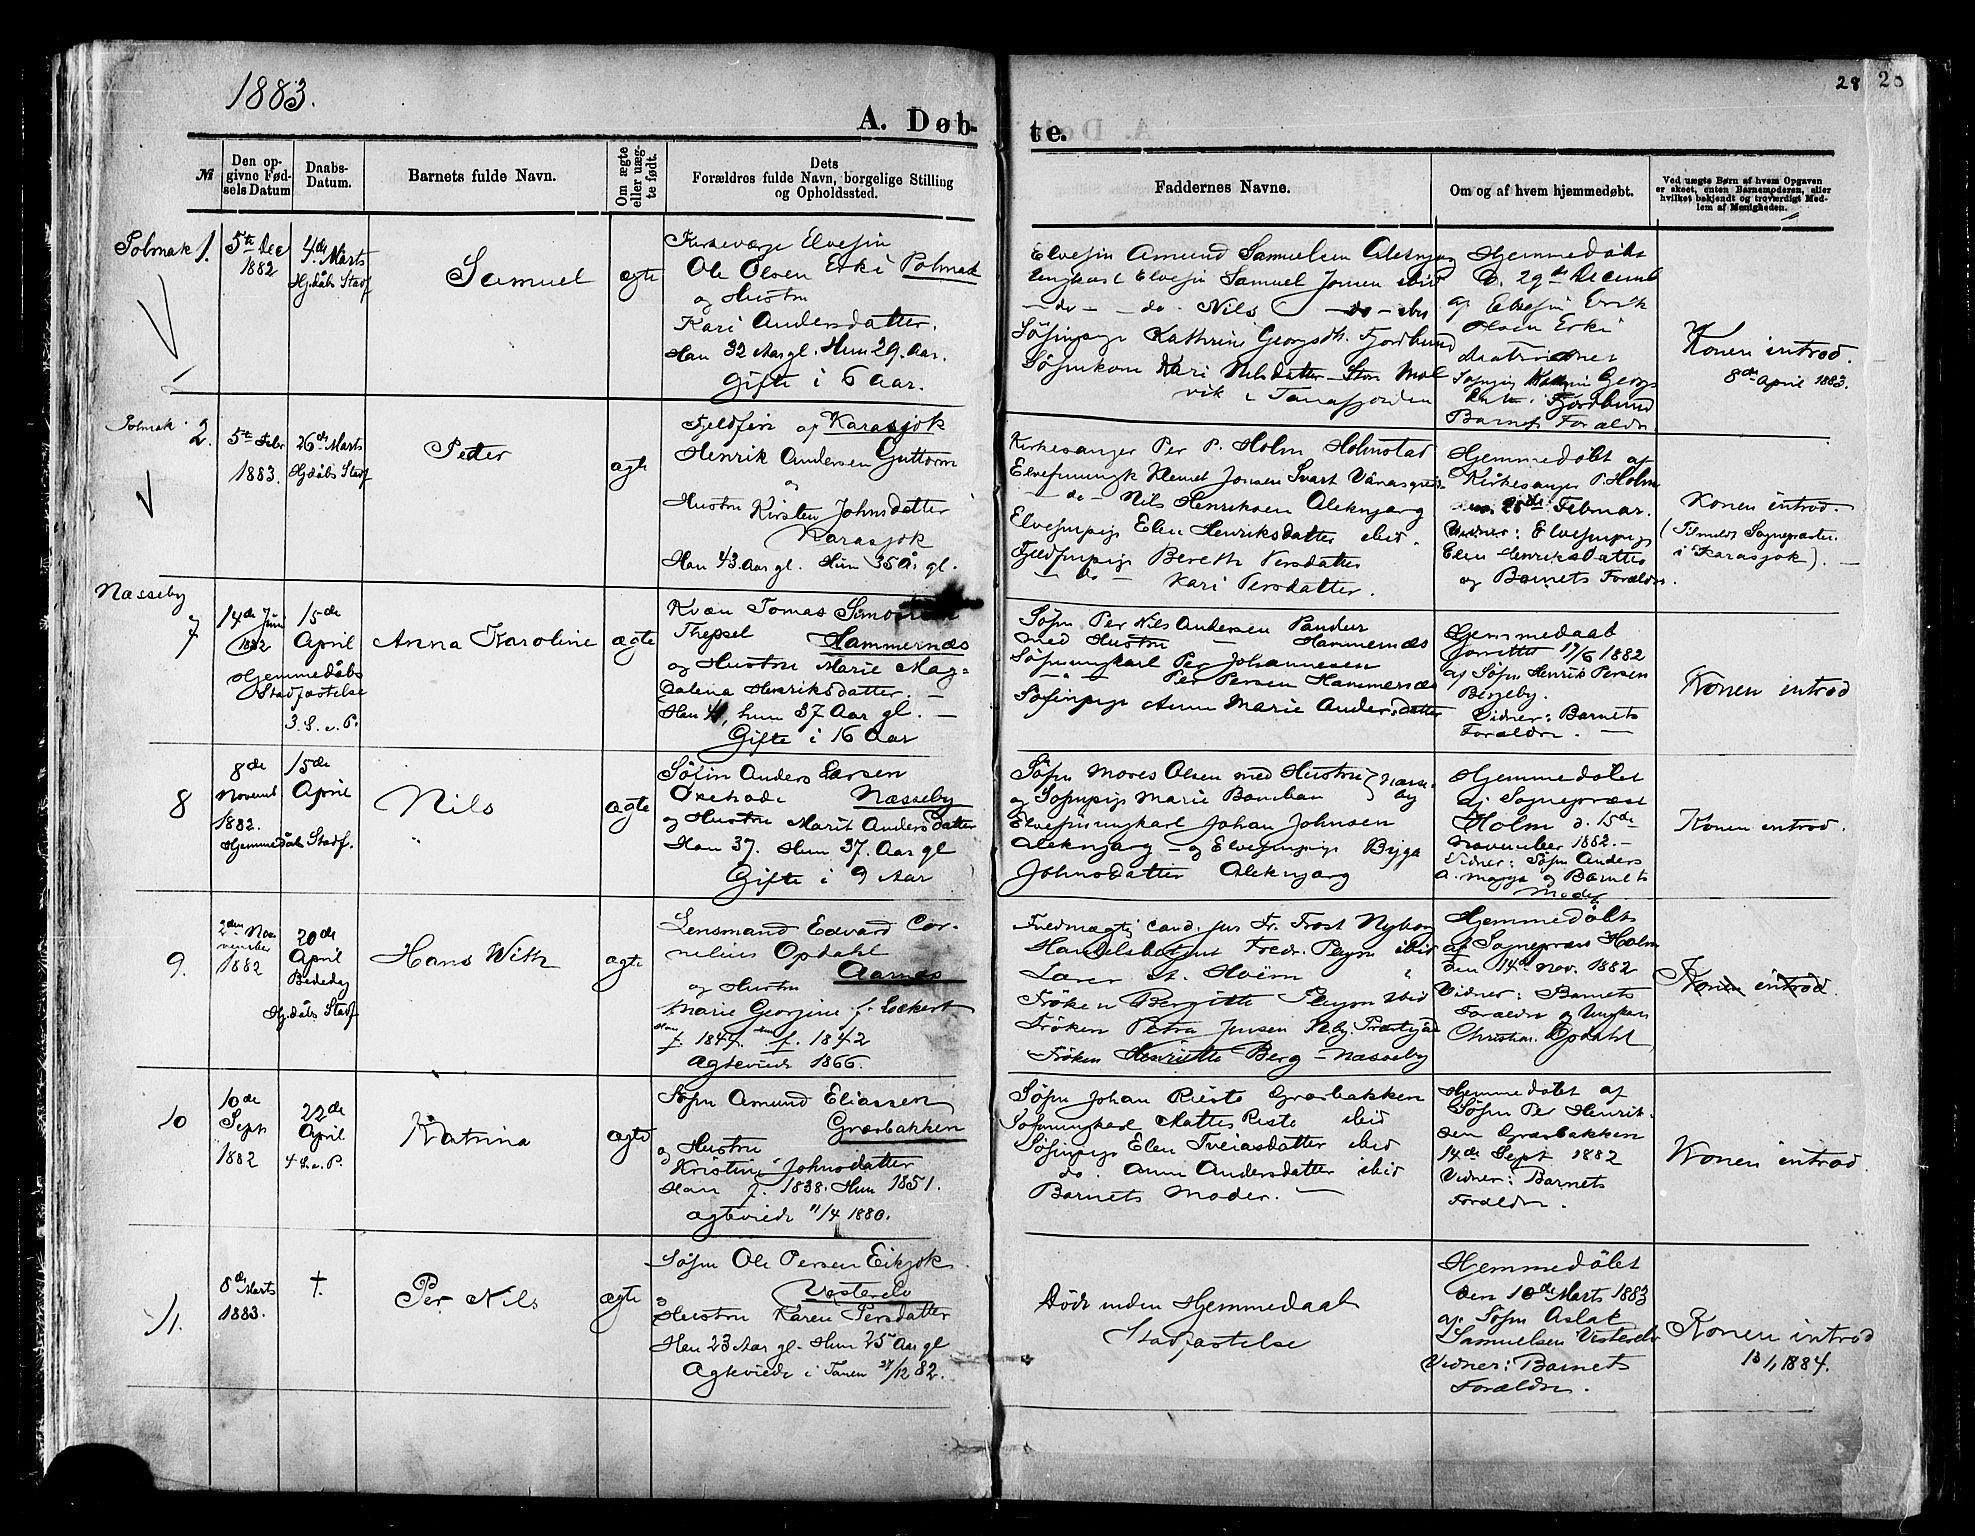 1883.
28 28
A. Døb-
te.
№
Den op-
givne Fød-
sels Datum
Daabs-
Datum.
Barnets fulde Navn.
Om ægte
eller uæg-
te født.
Dets
Forældres fulde Navn, borgelige Stilling
og Opholdssted.
Faddernes Navne.
Om og af hvem hjemmedøbt.
Ved uægte Børn af hvem Opgaven
er skeet, enten Barnemoderen, eller
hvilket bekjendt og troværdigt Med-
lem af Menigheden.
Polmak 1.
5te Dec
1882
4de Marts
Hjdåbs Stadf
Samuel
ægte
Kirkeværge Elvefin
Ole Olsen Erki Polmak
og Hustru
Kari Andersdatter.
Han 32 Aar gl. Hun 29. Aar.
Gifte i 6 Aar.
Elvefin Amund Samuelsen Aleknjarg
Ungkarl Elvefin Samuel Jonsen ibid
- do - do - Nils - do - ibid
Søfinpige Kathrine Georgsdtr. Fjordbund
Søfinkone Kari Nilsdatter - Store Mol
vik i Tanafjorden
Hjemmedøbt
D. 29de Decemb
af Elvefin Erik
Olsen Erki
Kathrin Georgs
Fjordbund
Barnets Forældre.
Konen introd.
8de April 1883.
Polmak 2.
5te Febr
1883.
26de Marts
Hjdåbs Stadf
Peder
ægte
Fjeldfin af Karasjok
Henrik Andersen Guttorm
og
Hustru Kirsten Johnsdatter
Karasjok
Han 43 Aar gl. Hun 35 Å. gl.
Kirkesanger Per P. Holm Holmstad
Klemet Jonsen Svart
- do - Nils Henriksen Aleknjarg
Elvefinpige Elen Henriksdatter ibid.
Fjeldfinpige Bereth Persdatter
- do - Kari Persdatter.
Hjemmedøbt af
Kirkesanger P. Holm
Februar.
Vidner: Elvefinpige
Elen Henriksdatter
og Barnets Forældre.
Konen introd.
(Tilmeldt Sognepræsten
i Karasjok). -
Næsseby
7
14de Juni
1882
15de
April
Hjemmedåbs
Stadfæstelse
3. S. e. P.
Anna Karoline
ægte
Kvæn Tomas Simonsen
Hammernæs
og Hustru Marie Mag-
dalena Henriksdatter. -
Han 41, hun 37 Aar gl. -
Gifte i 16 Aar
Søfin Per Nils Andersen Pandur
med Hustru - Hammernæs
Søfinungkarl Per Johannesen
- " - Per Persen Hammernæs
Søfinpige Anne Marie Andersdatter
Hjemmedaab
forrettet 17/6 1882
af Søfin Henrik Persen
Bergeby.
Vidner: Barnets
Forældre. -
Konen introd
8
8de
Novemb
1882.
15de
April
Hjemmedåbs Stadf.
Nils
ægte
Søfin Anders Larsen
Næsseby
og Hustru Marit Andersdatter
Han 37. Hun 37. Aar gl
Gifte i 9 Aar
Søfin Mores Olsen med Hustru
og Søfinpige Marie Banchan
Elvefinungkarl Johan Johnsen
Aleknjarg - og Elvefinpige Bigga
Johnsdatter Aleknjarg
Hjemmedøbt
af Sognepræst
Holm d. 15de
November 1882. -
Vidner: Søfin Anders
og Barnets
Moder
Konen introd.
9.
2den No-
vember
1882
20de
April
Bededag
Hjdåbs Stadf
Hans With
ægte
Lensmand Edvard Cor-
nelius Opdahl
Aarnes
og Hustru
Marie Georgine f. Lockert
Han f. 1844. hun f. 1842
Ægteviede 1866.
Fuldmægtig Cand. jur Fr. Frost Nyborg
Handelsbetjent Fredr. Pleym ibid
Lærer A. Hveem "
Frøken Bergitte Pleym ibid
Frøken Petra Jensen Nby. Præstegård
Frøken Henriette Berg - Næsseby
Hjemmedøbt
af Sognepræst Holm
den 14de Nov. 1882
Vidner: Barnets
Forældre og Ungkarl
Christian Opdahl
Konen introd.
10
10de
Sept
1882
22de
April
4 S. e. P.
Katrina
ægte
Søfin Amund Eliassen
Græsbakken
og Hustru
Kristine Johnsdatter
Han f. 1838. Hun 1851.
Ægteviede 11/4 1880.
Søfin Johan Rieste Græsbakken
Søfinungkarl Mattes Rieste ibid
Søfinpige Elen Iveiasdatter ibid
do. Anne Andersdatter ibid
Barnets Moder. -
Hjemmedøbt af
Søfin Per Henrik-
sen Græsbakken
14de Sept 1882
Vidner: Barnets
Forældre.
Konen introd.
11.
8de Marts
1883.
†.
Per Nils
ægte
Søfin Ole Persen Eikjok
Vesterelv
og
Hustru Karen Persdatter
Han 23 Aar gl. Hun 25 Aar gl
Ægteviede i Tanen 27/12 82.
Døde inden Hjemmedaab
Stadfæstelse
Hjemmedøbt
den 10de Marts 1883
af Søfin Aslak
Samuelsen Vesterelv
Vidner: Barnets
Forældre.
Konen introd
13/1 1884.